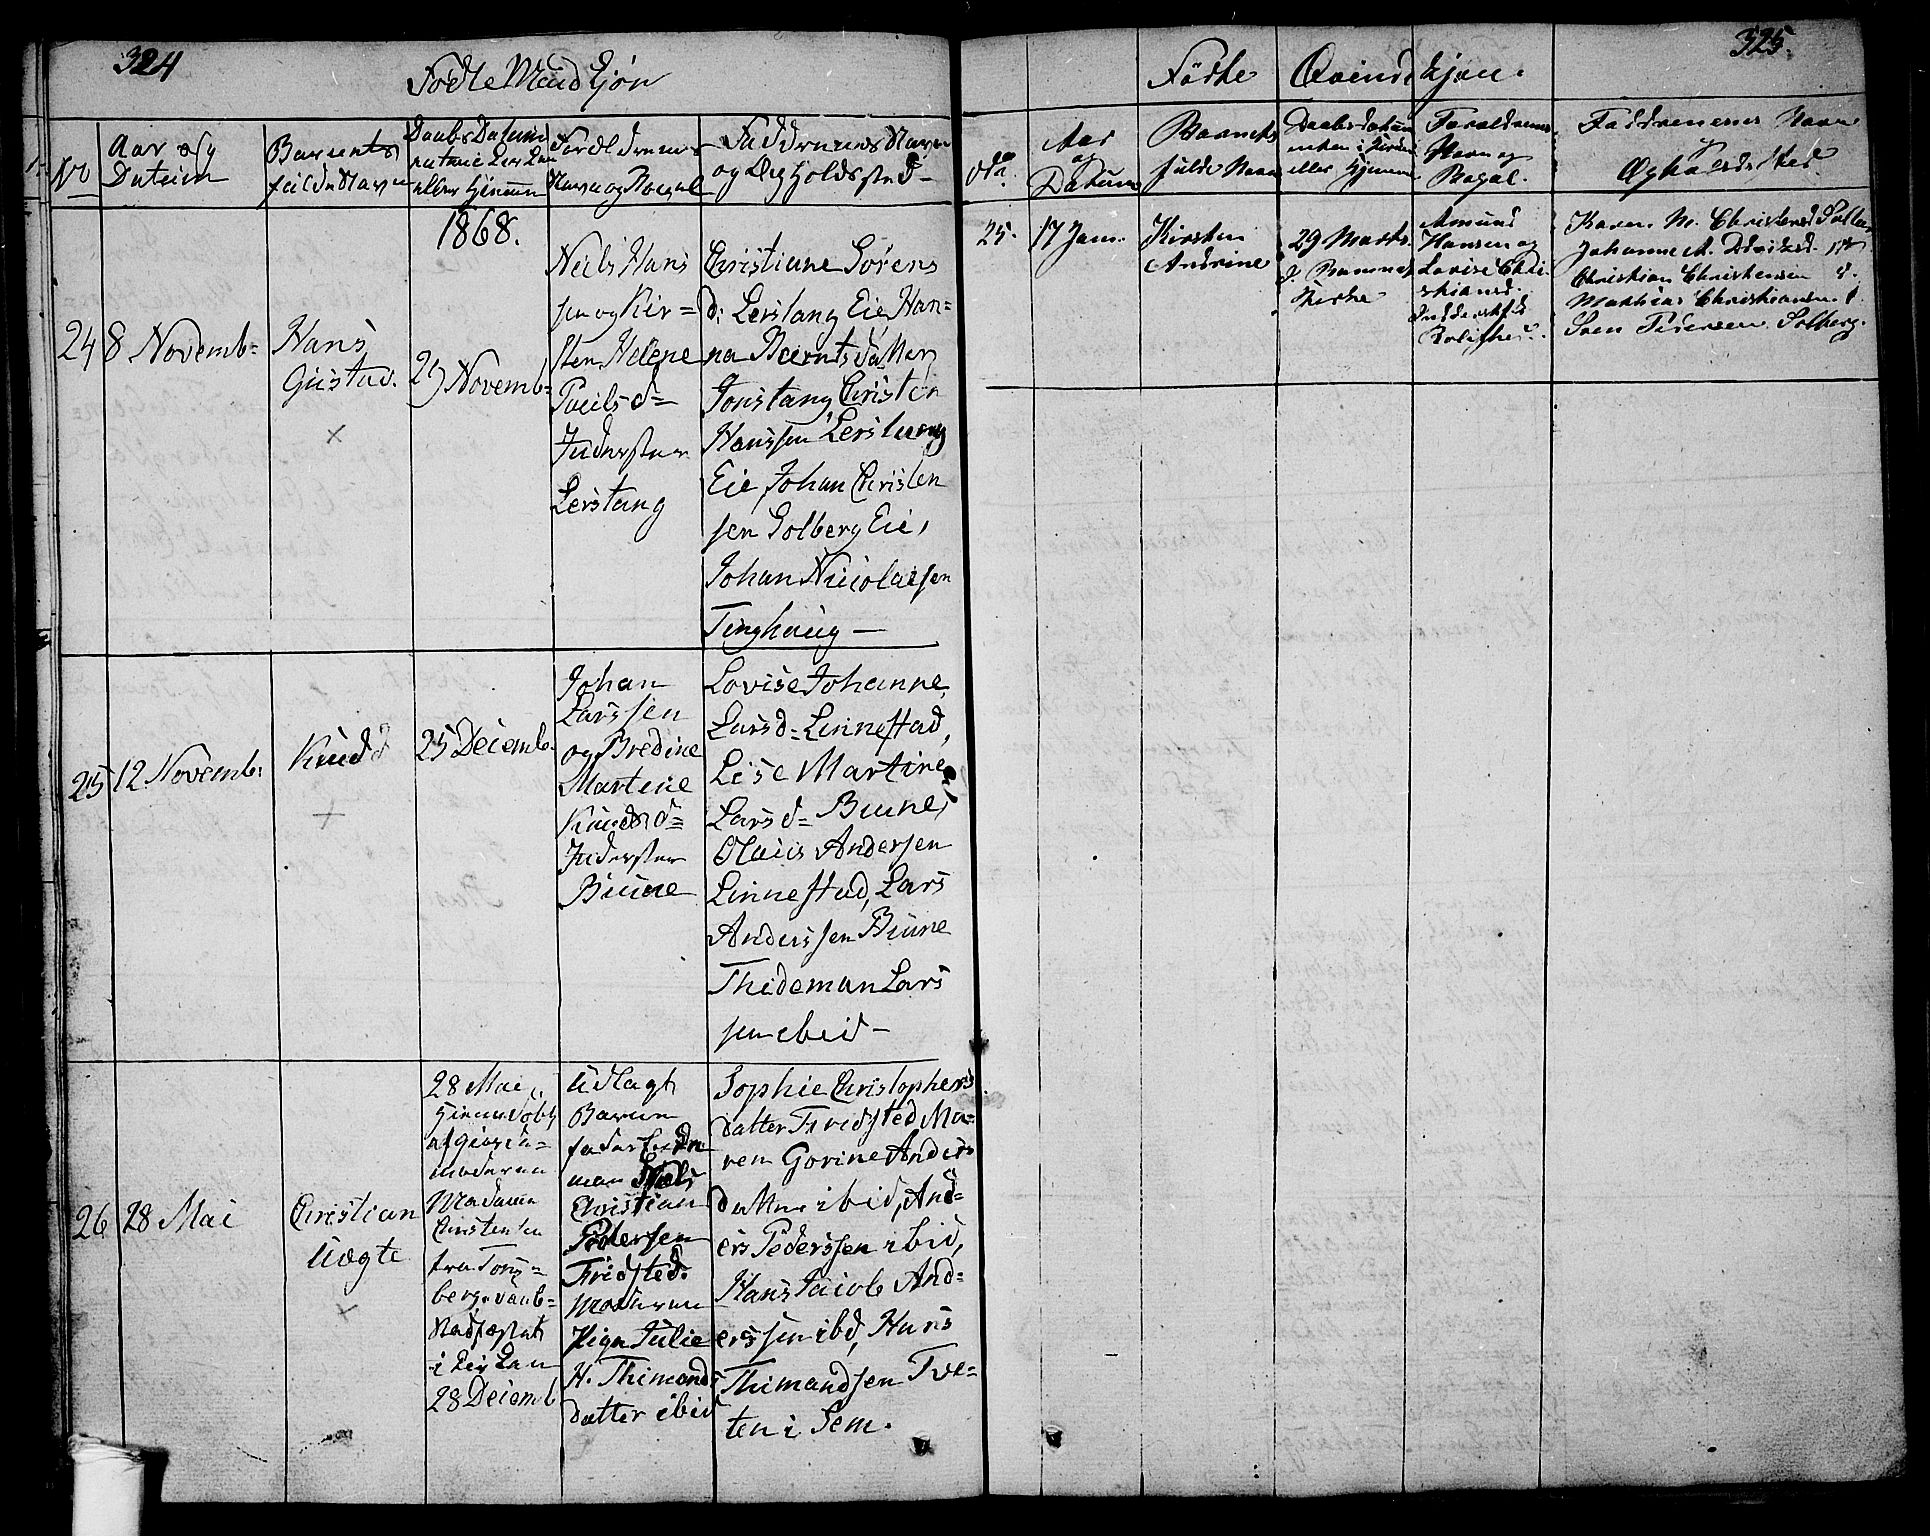 324
Fødte Mand Kjøn
No
Aar og
Datum
Barnets
fulde Navn
Daabs Datum
eller Hiemme
Forældrenes
Navn og
Faddernes Navn
og Opholdsted
1868.
24
8 Novemb=
Hans
Gustav.
×
29 Novemb=
Niels Hans
sen og Kir=
sten Helene
Pouls d=
Inderster
Lerstang
Christiane Sørens
d: Lerstang Eie Han=
na Berntsdatter
Jonstang Christen
Hanssen Lerstang
Eie Johan Christen
sen Solberg Eie,
Johan Nicolaisen
Tinghaug —
25
12 Novemb:
Knud
×
25 Decemb.
Johan
Larssen
og Bredine
Martine
Knudsd=
Inderster
Buune
Lovise Johanne
Larsd= Linnestad,
Lise Martine
Larsd= Buune,
Olaus Andersen
Linnestad, Lars
Anderssen Buune
Thideman Lars
sen ibid —
26
28 Mai
Christian
Uægte
×
28 Mai,
Hiemmedøbt
af Giorde=
moderen
Madame
Christensen
fra Tøns=
berg. Daab=
Stadfæstet
i Kirken
28 Decemb
Udlagt
Barne
fader
man Niels
Christian
Pedersen
Fridsted.
Moderen
Pige Julie
H. Thimands
datter ibid
Sophie Christophers
datter Fridsted Ma=
ren Gorine Anders
datter ibid, And=
ers Pederssen ibid,
Hans Jacob And=
erssen ibd, Hans
Thimandsen Tve=
ten i Sem.
325.
Fødte Qvindekjøn.
No.
Aar
og
Datum
Barnets
fulde Navn
Daabsdatum
enten i Kirken
eller Hjemme
Forældrenes
Navn og
Bopæl.
Faddrenes Navn
og
Opholdssted.
25.
17 Jan.
Kirsten
Andrine
29 Marts.
i Ramnes
Kirke
Amund
Hansen og
Lovise Chri-
stiansd.
Karen M. Christensd
Johanne A.
Christian Christensen
Mathias Christiansen
Sven Pedersen Solberg.